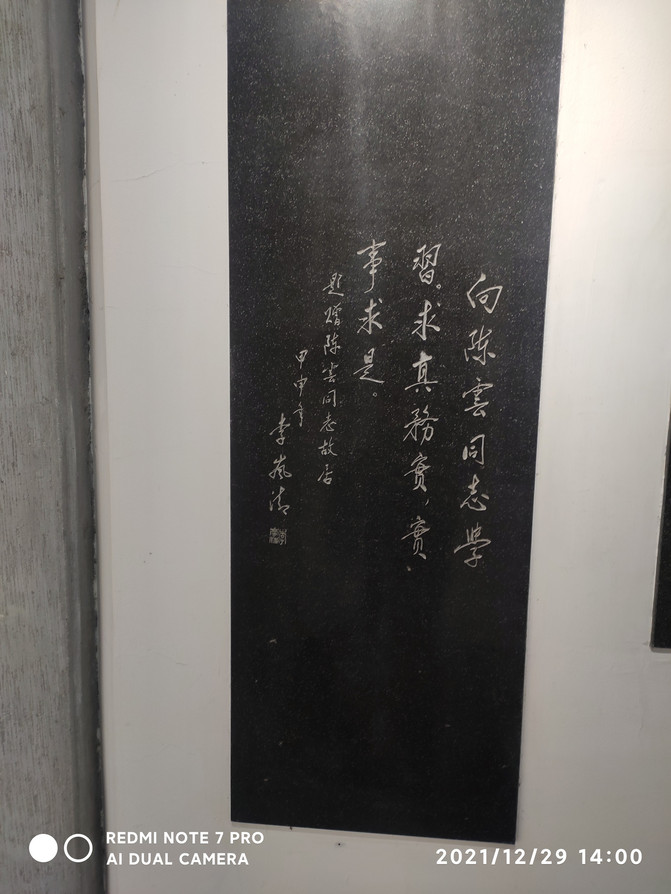 向陈雲同志學
習。求真務實，實
事求是。
題赠陈雲同志故居
甲申年
李嵐清
REDMI NOTE 7 PRO
AI DUAL CAMERA
2021/12/29 14:00